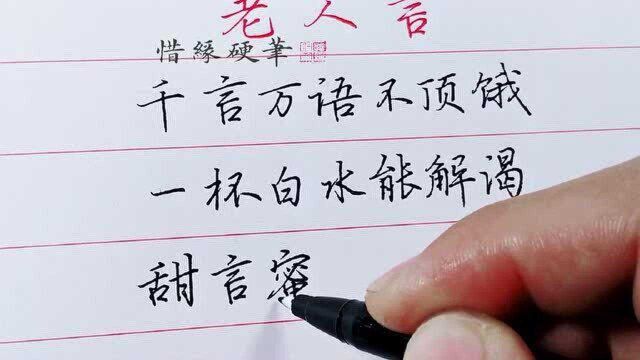 老人言
惜緣硬筆
千言万语不顶饿
一杯白水能解渴
甜言蜜